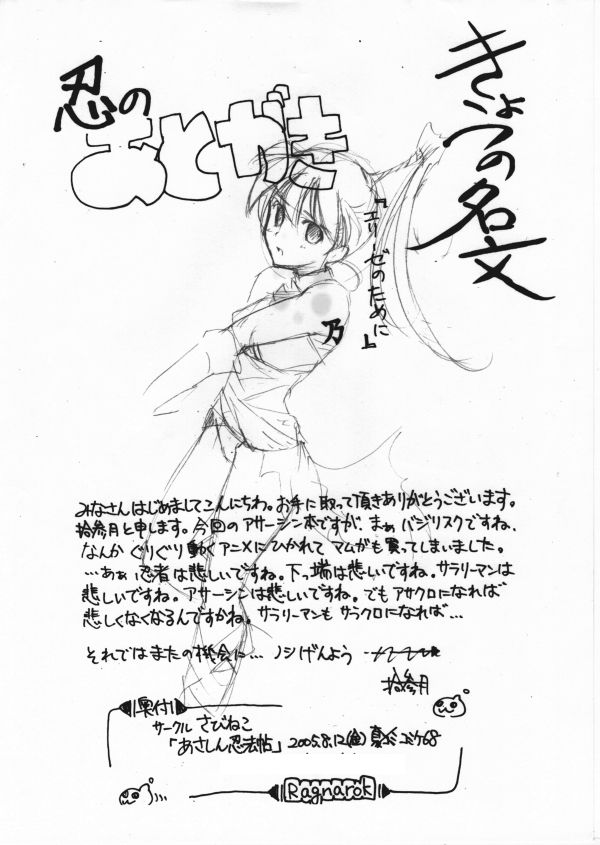 きょうの名文
『エリーゼのために』
忍の
あとがき
乃
みなさんはじめましてこんにちわ。お手に取って頂きありがとうございます。
拾参月と申します。今回のアサーシン本ですが、まぁ バジリスクですね、
なんか ぐりぐり動くアニメにひかれて マムがも買ってしまいました。
…あぁ 忍者は悲しいですね。下っ端は悲しいですね。サラリーマンは
悲しいですね。アサーシンは悲しいですね。でも アサクロになれば
悲しくなくなるんですかね。サラリーマンも サラクロになれば…
それではまたの機会に… ノシ げんよう
拾参月
奥付
サークル さびねこ
「あさしん忍法帖」 2005.8.12(金) コミケ68
Ragnarok